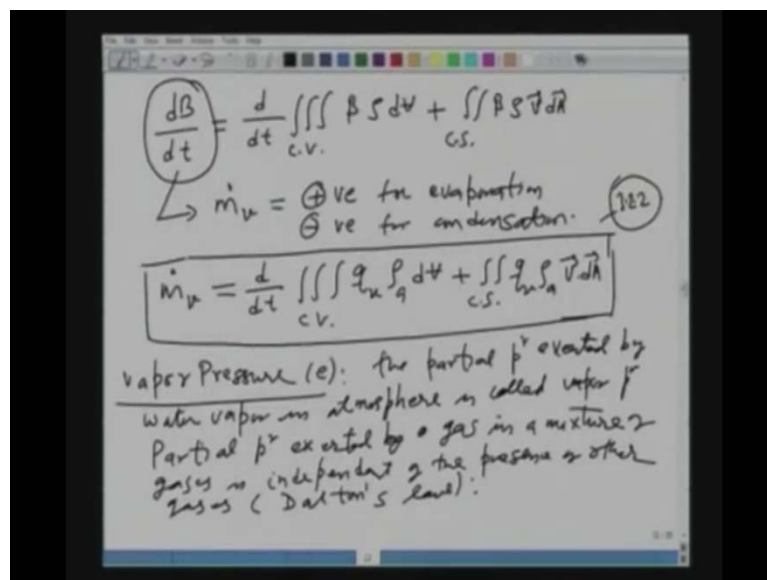 dB/dt = d/dt ∭_{C.V.} β ρ d∀ + ∬_{C.S.} β ρ V⃗ dA⃗
↳ ṁ_v = ⊕ ve for evaporation
⊖ ve for condensation.
ṁ_v = d/dt ∭_{C.V.} q_v ρ_a d∀ + ∬_{C.S.} q_v ρ_a V⃗ dA⃗
Vapor Pressure (e): the partial pʳ exerted by
water vapor in atmosphere is called vapor pʳ
Partial pʳ exerted by a gas in a mixture of
gases is independent of the presence of other
gases (Dalton's law):